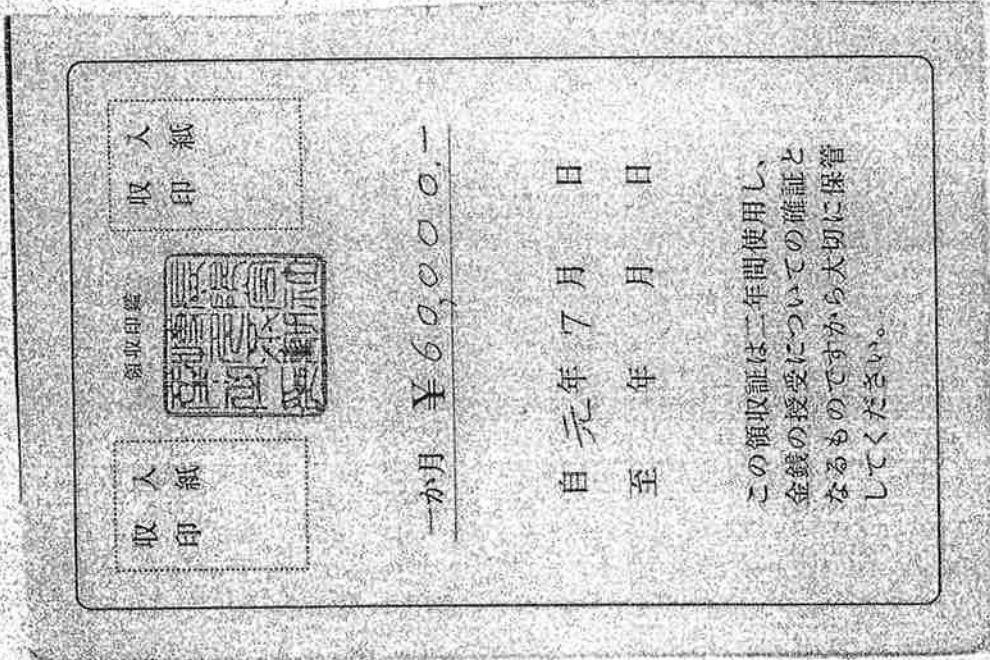 収入
印紙
領収印鑑
収入
印紙
一か月 ¥60,000.-
自 元年7月 日
至 年 月 日
この領収証は二年間使用し、
金銭の授受についての確証と
なるものですから大切に保管
してください。